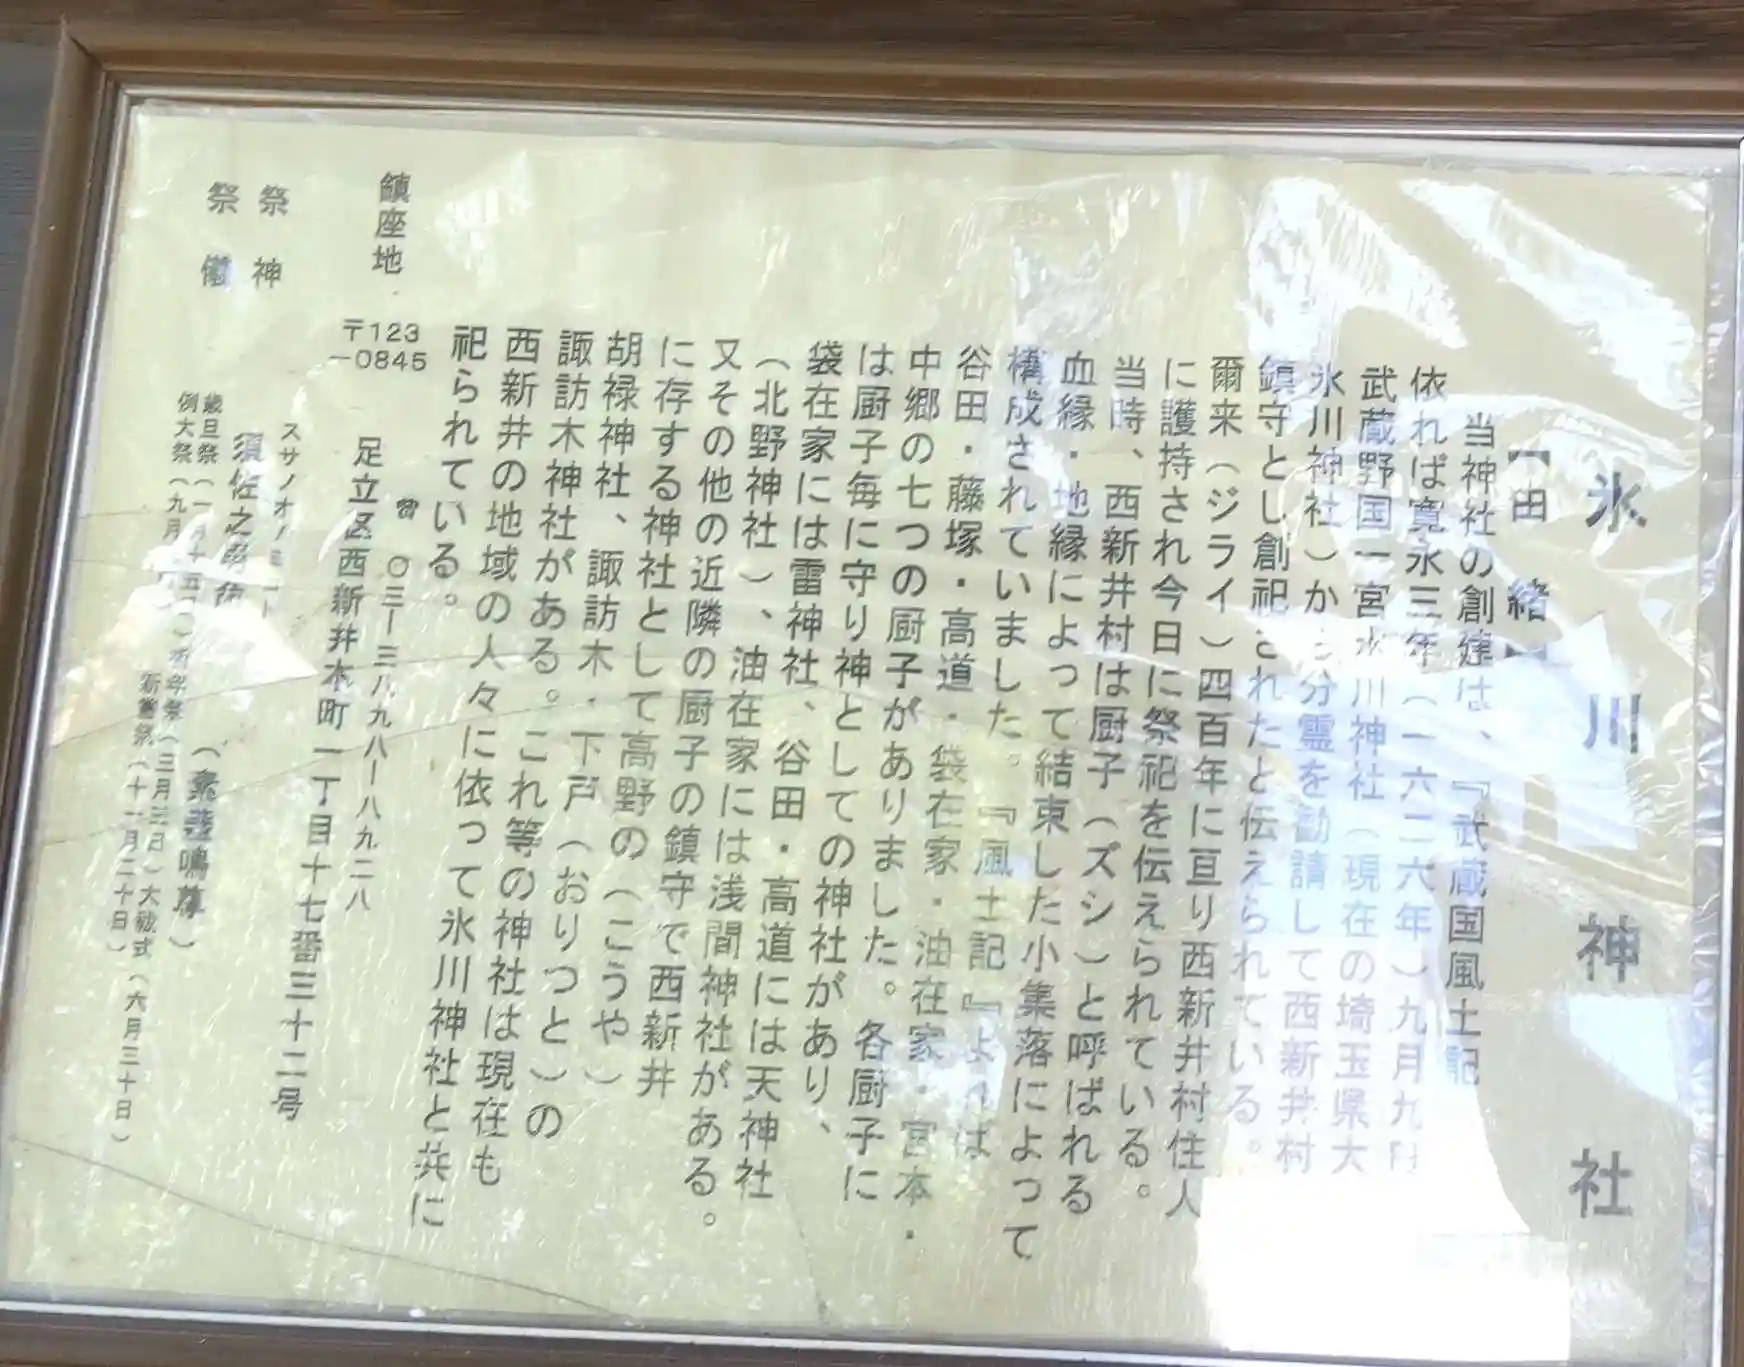 氷川神社
【由緒】
当神社の創建は、『武蔵国風土記
依れば寛永三年(一六二六年)九月九日
武蔵野国一宮氷川神社(現在の埼玉県大
氷川神社)から分霊を勧請して西新井村
鎮守とし創祀されたと伝えられている。
爾来(ジライ)四百年に亘り西新井村住人
に護持され今日に祭祀を伝えられている。
当時、西新井村は厨子(ズシ)と呼ばれる
血縁・地縁によって結束した小集落によって
構成されていました。『風土記』よれば
谷田・藤塚・高道・袋在家・油在家・宮本・
中郷の七つの厨子がありました。各厨子に
は厨子毎に守り神としての神社があり、
袋在家には雷神社、谷田・高道には天神社
(北野神社)、油在家には浅間神社がある。
又その他の近隣の厨子の鎮守で西新井
に存する神社として高野の(こうや)
胡禄神社、諏訪木・下戸(おりつと)の
諏訪木神社がある。これ等の神社は現在も
西新井の地域の人々に依って氷川神社と共に
祀られている。
鎮座地 〒123-0845
☎ 〇三ー三八九八ー八九二八
足立区西新井本町一丁目十七番三十二号
祭神
スサノオノミコト
須佐之男命(素盞嗚尊)
祭儀
歳旦祭(一月 祈年祭(三月三日)大祓式(六月三十日)
例大祭(九月 新嘗祭(十一月二十日)